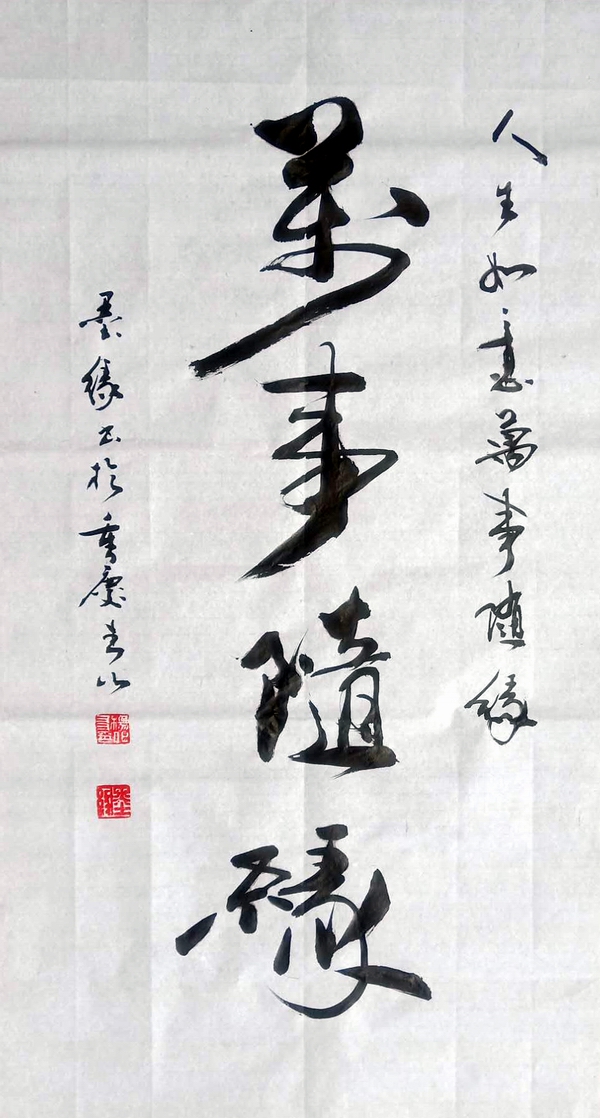 人生如意萬事隨緣
萬事隨緣
墨緣书於重慶